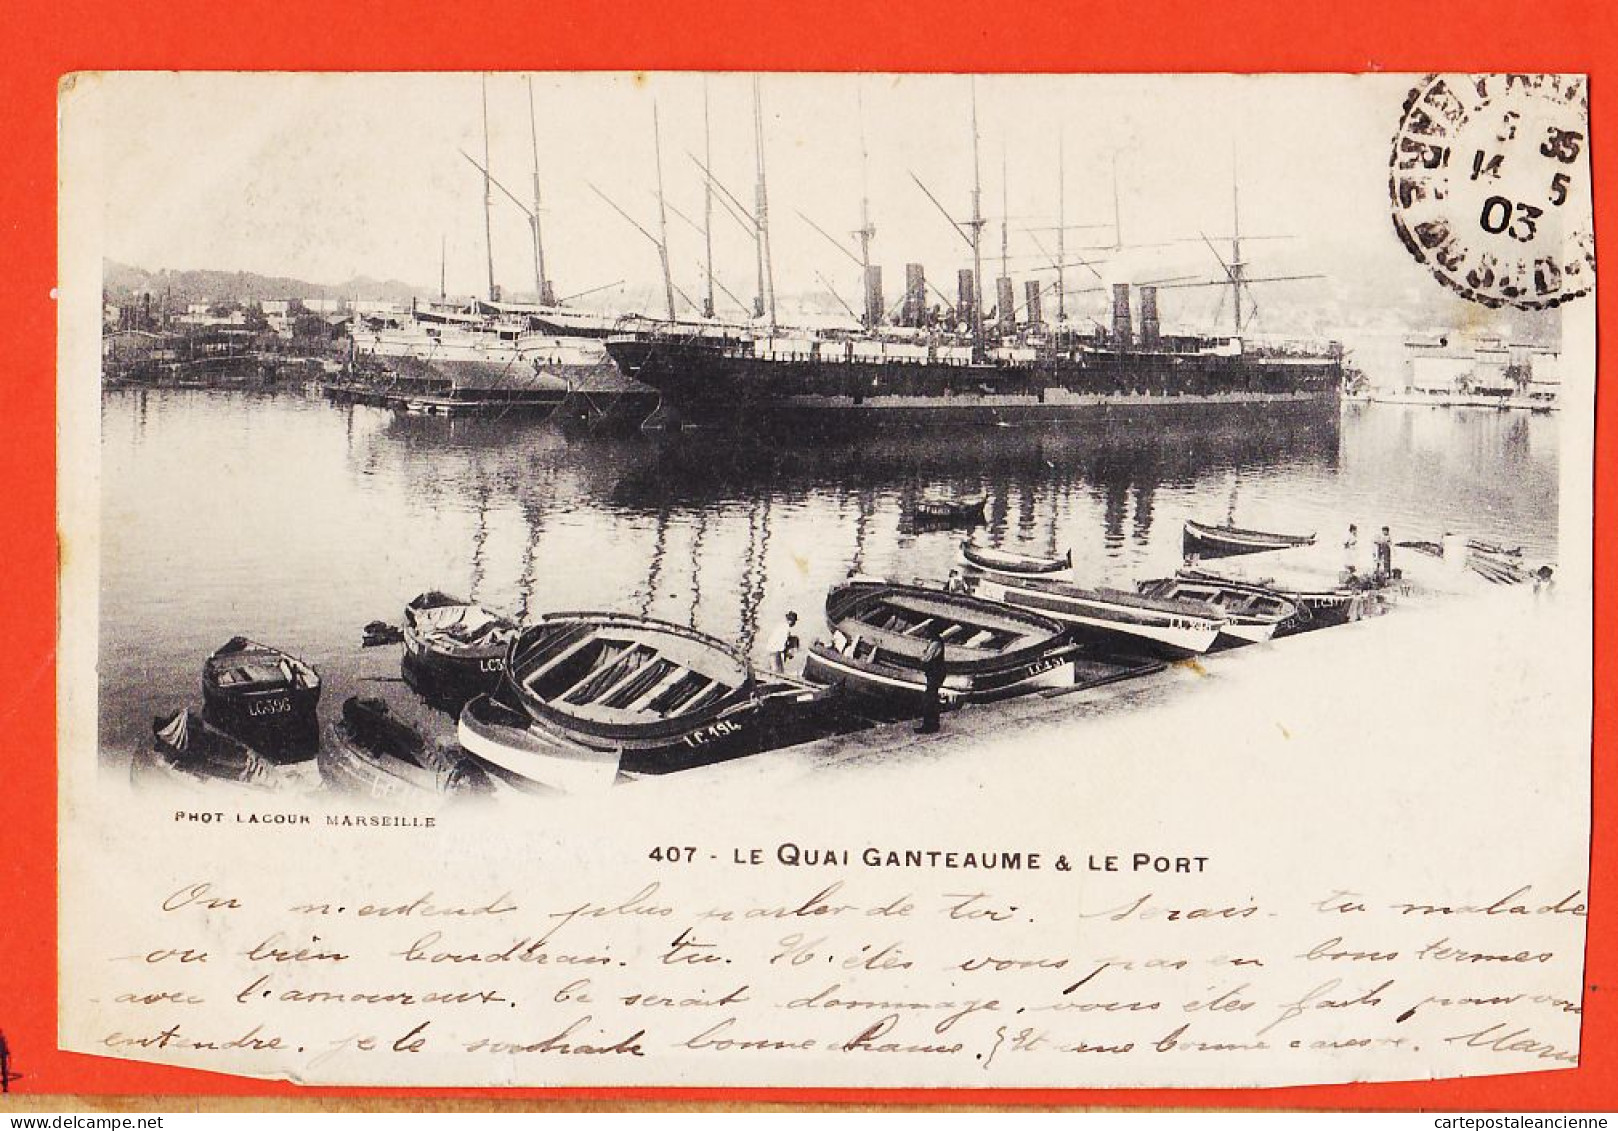 PARI
GARE DU SUD
5 35
14 5
03
LC 396
LC3
LC 194
LC431
PHOT LACOUR MARSEILLE
407 - LE QUAI GANTEAUME & LE PORT
On n'entend plus parler de toi. Serais-tu malade
ou bien bouderais-tu. N'êtes vous pas en bons termes
avec l'amoureux. Ce serait dommage, vous êtes faits pour vous
entendre. je te souhaite bonne chance. Et une bonne caresse. Marie
cartepostaleancienne